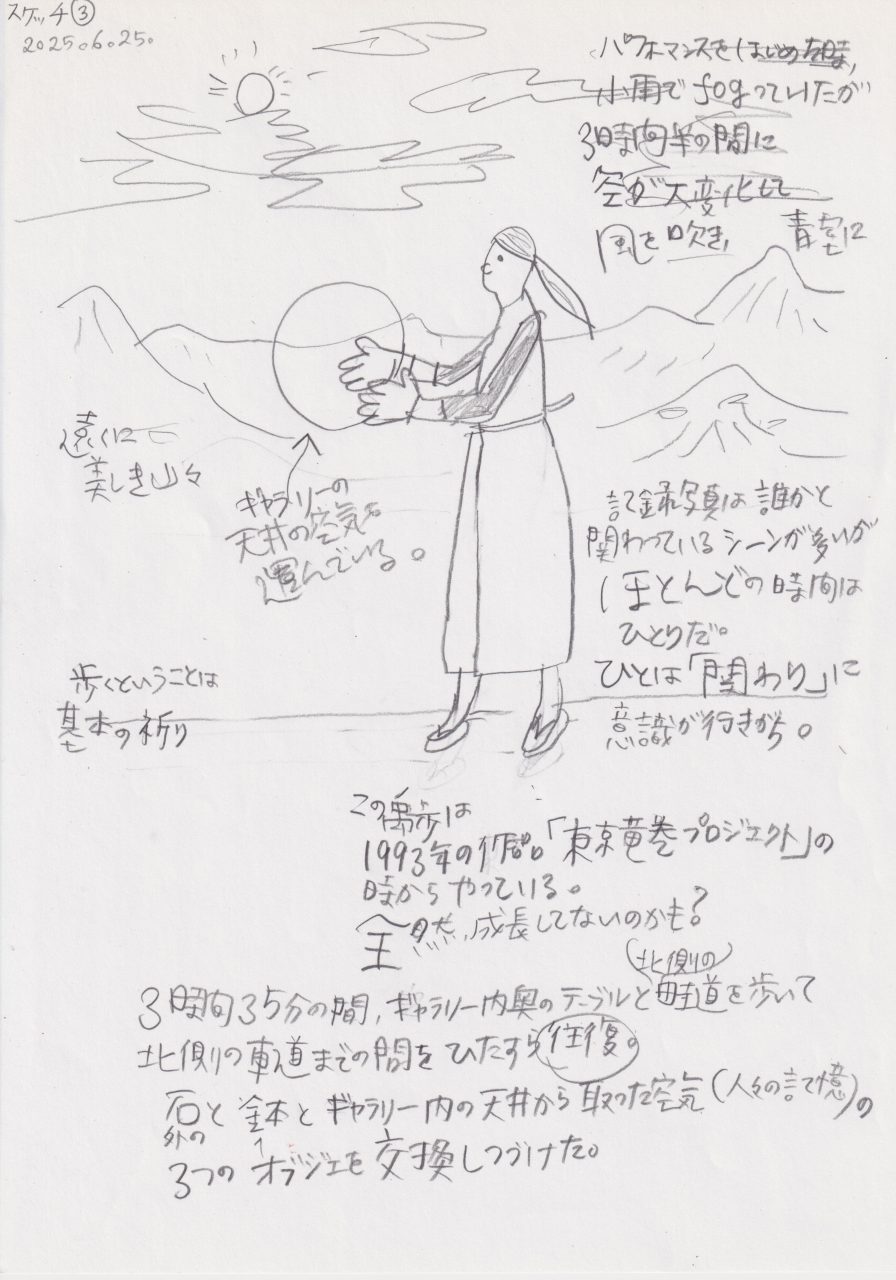 スケッチ③
2025.6.25.
パフォーマンスをはじめた時、
小雨でfogっていたが
3時間半の間に
空が大変化して
風を吹き、青空に
遠くに
美しき山々
ギャラリーの
天井の空気を
運んでいる。
記録写真は誰かと
関わっているシーンが多いが
ほとんどの時間は
ひとりだ。
ひとは「関わり」に
意識が行きがち。
歩くということは
基本の祈り
この禹歩は
1993年の作品「東京竜巻プロジェクト」の
時からやっている。
全然、成長してないのかも?
3時間35分の間、ギャラリー内奥のテーブルと(北側の)畦道を歩いて
北側の車道までの間をひたすら往復。
石と鉢とギャラリー内の天井から取った空気(人々の記憶)の
外の
3つのオブジェを交換しつづけた。